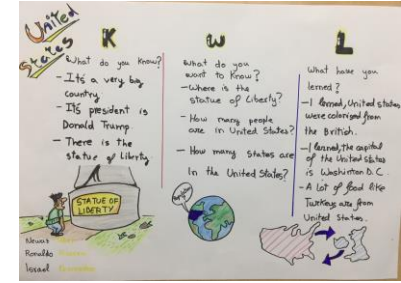 United
States
K
What do you know?
- It's a very big
country
- It's president is
Donald Trump
- There is the
statue of Liberty
STATUE OF
LIBERTY
Neuas
Ronaldo
Israel
W
What do you
want to know?
- Where is the
statue of Liberty?
- How many people
are in United States?
- How many states are
in the United States?
L
What have you
lerned?
- I lerned, United states
were colonised from
the British.
- I lerned, the capital
of the United states
is Washinton D.C.
- A lot of food like
Turkeys are from
United States.